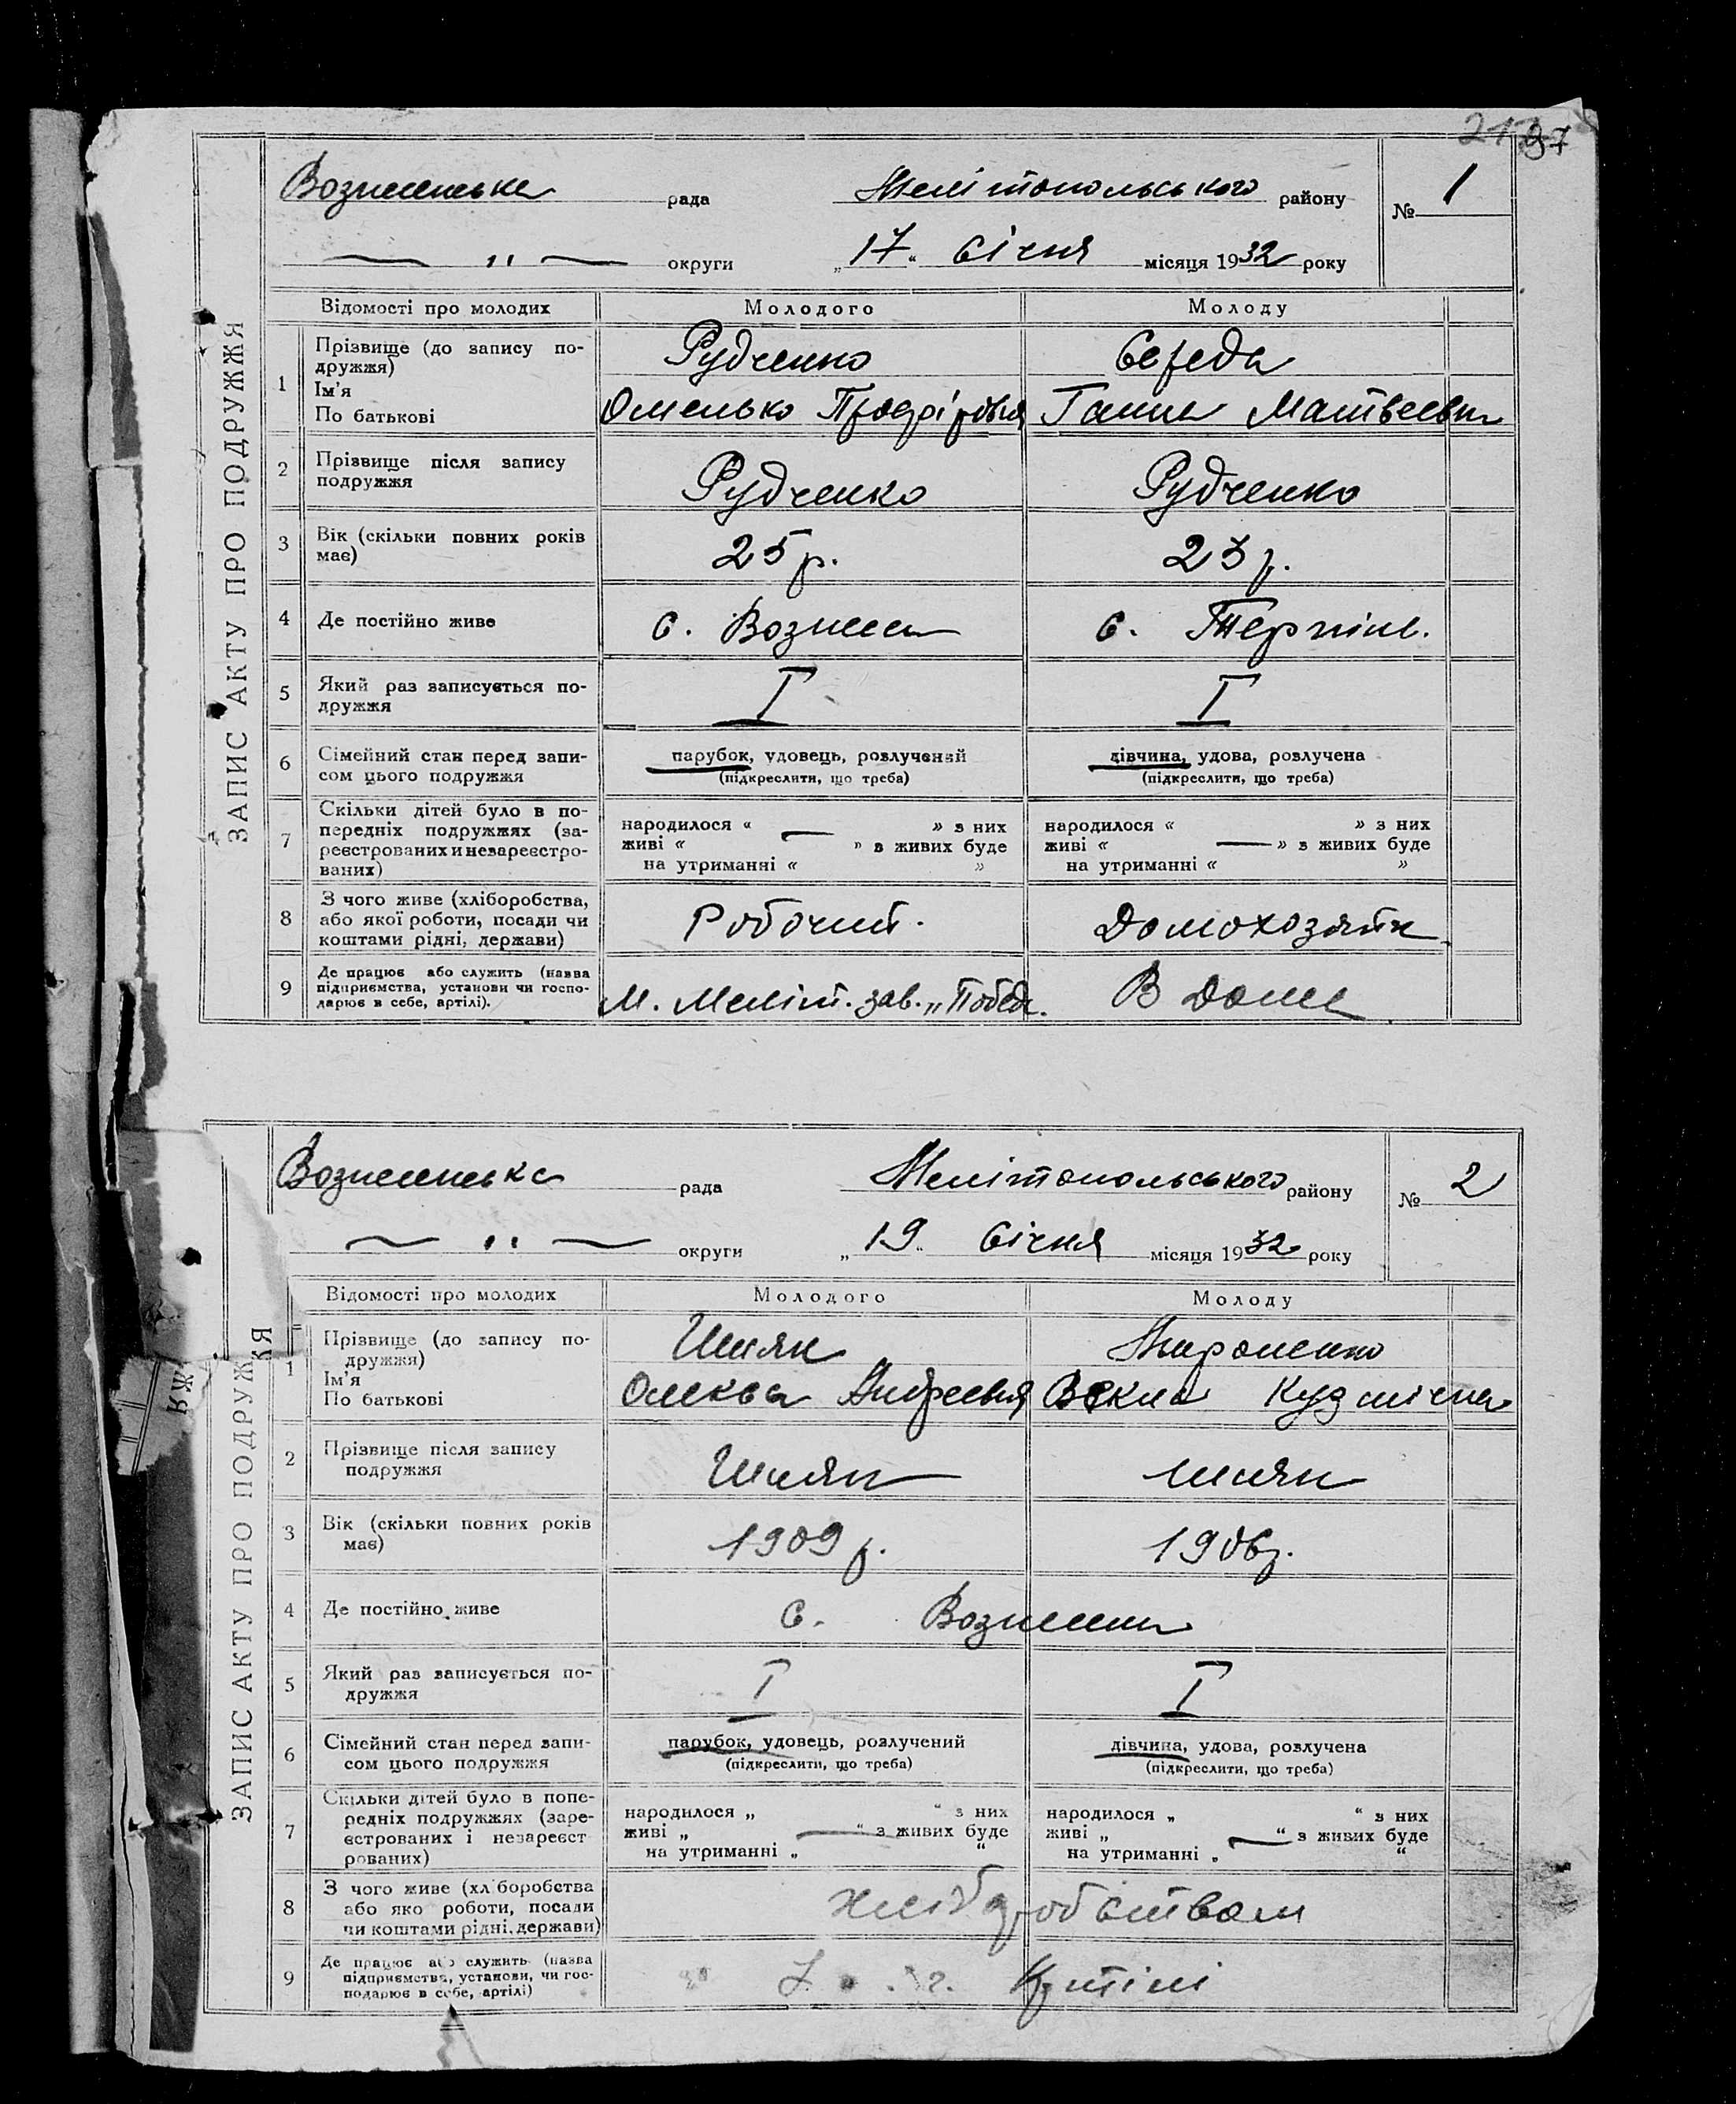 97
Вознесенська рада Мелітопольського району № 1
— " — округи „17“ Січня місяця 1932 року
ЗАПИС АКТУ ПРО ПОДРУЖЖЯ
Відомості про молодих Молодого Молоду
1 Прізвище (до запису по-
дружжя) Рудченко Середа
Ім'я
По батькові Омелько Ганна Матвеевна
2 Прізвище після запису
подружжя Рудченко Рудченко
3 Вік (скільки повних років
має) 25 р. 23 р.
4 Де постійно живе с. Вознесен с. Терпіне.
5 Який раз записується по-
дружжя I I
6 Сімейний стан перед запи-
сом цього подружжя
парубок, удовець, розлучений дівчина, удова, розлучена
(підкреслити, що треба) (підкреслити, що треба)
7 Скільки дітей було в по-
передніх подружжях (за-
реєстрованих и незареєстро-
ваних)
народилося « » з них народилося « » з них
живі « — » з живих буде живі « — » з живих буде
на утриманні « » на утриманні « »
8 З чого живе (хліборобства,
або якої роботи, посади чи
коштами рідні, держави) Робочий. Домохозяйк
9 Де працює або служить (назва
підприємства, установи чи госпо-
дарює в себе, артілі). М. Меліт. зав. „Побєда. В доме
Вознесенська рада Мелітопольського району № 2
— " — округи „19“ Січня місяця 1932 року
ЗАПИС АКТУ ПРО ПОДРУЖ
КЯ
Відомості про молодих Молодого Молоду
1 Прізвище (до запису по-
дружжя) Шиян Мироненко
Ім'я
По батькові Олекса Андреевич Векла Кузмічна
2 Прізвище після запису
подружжя Шиян Шиян
3 Вік (скільки повних років
має) 1909 р. 1906 р.
4 Де постійно живе с. Вознесен
5 Який раз записується по-
дружжя I I
6 Сімейний стан перед запи-
сом цього подружжя
парубок, удовець, розлучений дівчина, удова, розлучена
(підкреслити, що треба) (підкреслити, що треба)
7 Скільки дітей було в попе-
редніх подружжях (заре-
єстрованих і незареєст
рованих)
народилося „ “ з них народилося „ “ з них
живі „ — “ з живих буде живі „ — “ з живих буде
на утриманні „ “ на утриманні „ “
8 З чого живе (хл боробства
або яко роботи, посади
чи коштами рідні, держави) хліборобством
9 Де працює або служить (назва
підприємства, установи, чи гос-
подарює в себе, артілі) Артілі